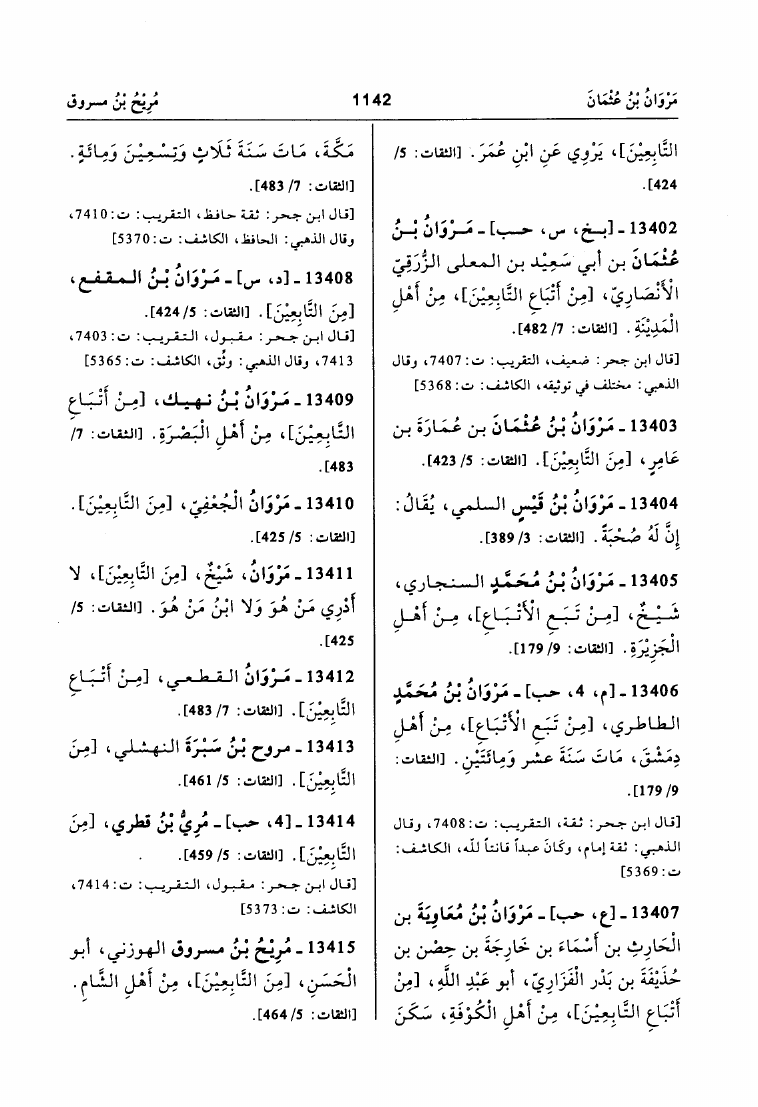 مَرْوَانُ بْنُ عُثْمَانَ 1142 مُرِيْحُ بْنُ مسروق
التَّابِعِيْنَ]، يَرْوِي عَنِ ابْنِ عُمَرَ. [الثقات: 5/
424].
13402 - [بخ، س، حب] - مَرْوَانُ بْنُ
عُثْمَانَ بن أبي سَعِيْد بن المعلى الزُّرَقِيّ
الأَنْصَارِيّ، [مِنْ أَتْبَاع التَّابِعِيْنَ]، مِنْ أَهْلِ
الْمَدِيْنَةِ. [الثقات: 7/ 482].
[قال ابن حجر: ضعيف، التقريب: ت: 7407، وقال
الذهبي: مختلف في توثيقه، الكاشف: ت: 5368]
13403 - مَرْوَانُ بْنُ عُثْمَانَ بن عُمَارَةَ بن
عَامِرٍ، [مِنَ التَّابِعِيْنَ]. [الثقات: 5/ 423].
13404 - مَرْوَانُ بْنُ قَيْسٍ السلمي، يُقَالُ:
إِنَّ لَهُ صُحْبَةً. [الثقات: 3/ 389].
13405 - مَرْوَانُ بْنُ مُحَمَّدٍ السنجاري،
شَيْخٌ، [مِنْ تَبَعِ الأَتْبَاعِ]، مِنْ أَهْلِ
الْجَزِيْرَةِ. [الثقات: 9/ 179].
13406 - [م، 4، حب] - مَرْوَانُ بْنُ مُحَمَّدٍ
الطاطري، [مِنْ تَبَعِ الأَتْبَاعِ]، مِنْ أَهْلِ
دِمَشْقَ، مَاتَ سَنَةَ عشر وَمِائَتَيْنِ. [الثقات:
9/ 179].
[قال ابن حجر: ثقة، التقريب: ت: 7408، وقال
الذهبي: ثقة إمام، وكَانَ عبداً قانتاً لله، الكاشف:
ت: 5369]
13407 - [ع، حب] - مَرْوَانُ بْنُ مُعَاوِيَةَ بن
الْحَارِثِ بن أَسْمَاءَ بن خَارِجَةَ بن حِصْن بن
حُذَيْفَةَ بن بَدْر الْفَزَارِيّ، أبو عَبْدِ اللَّهِ، [مِنْ
أَتْبَاعِ التَّابِعِيْنَ]، مِنْ أَهْلِ الْكُوْفَةِ، سَكَنَ
مَكَّةَ، مَاتَ سَنَةَ ثَلاَثٍ وَتِسْعِيْنَ وَمِائَةٍ.
[الثقات: 7/ 483].
[قال ابن حجر: ثقة حافظ، التقريب: ت: 7410،
وقال الذهبي: الحافظ، الكاشف: ت: 5370]
13408 - [د، س] - مَرْوَانُ بْنُ المقفع،
[مِنَ التَّابِعِيْنَ]. [الثقات: 5/ 424].
[قال ابن حجر: مقبول، التقريب: ت: 7403،
7413، وقال الذهبي: وثق، الكاشف: ت: 5365]
13409 - مَرْوَانُ بْنُ نهيك، [مِنْ أَتْبَاع
التَّابِعِيْنَ]، مِنْ أَهْلِ الْبَصْرَةِ. [الثقات: 7/
483].
13410 - مَرْوَانُ الْجُعْفِيّ، [مِنَ التَّابِعِيْنَ].
[الثقات: 5/ 425].
13411 - مَرْوَانُ، شَيْخٌ، [مِنَ التَّابِعِيْنَ]، لا
أَدْرِي مَنْ هُوَ وَلا ابْنُ مَنْ هُوَ. [الثقات: 5/
425].
13412 - مَرْوَانُ القطعي، [مِنْ أَتْبَاع
التَّابِعِيْنَ]. [الثقات: 7/ 483].
13413 - مروح بْنُ سَبْرَةَ النهشلي، [مِنَ
التَّابِعِيْنَ]. [الثقات: 5/ 461].
13414 - [4، حب] - مُرِيُّ بْنُ قطري، [مِنَ
التَّابِعِيْنَ]. [الثقات: 5/ 459].
[قال ابن حجر: مقبول، التقريب: ت: 7414،
الكاشف: ت: 5373]
13415 - مُرِيْحُ بْنُ مسروق الهوزني، أبو
الْحَسَنِ، [مِنَ التَّابِعِيْنَ]، مِنْ أَهْلِ الشَّامِ.
[الثقات: 5/ 464].